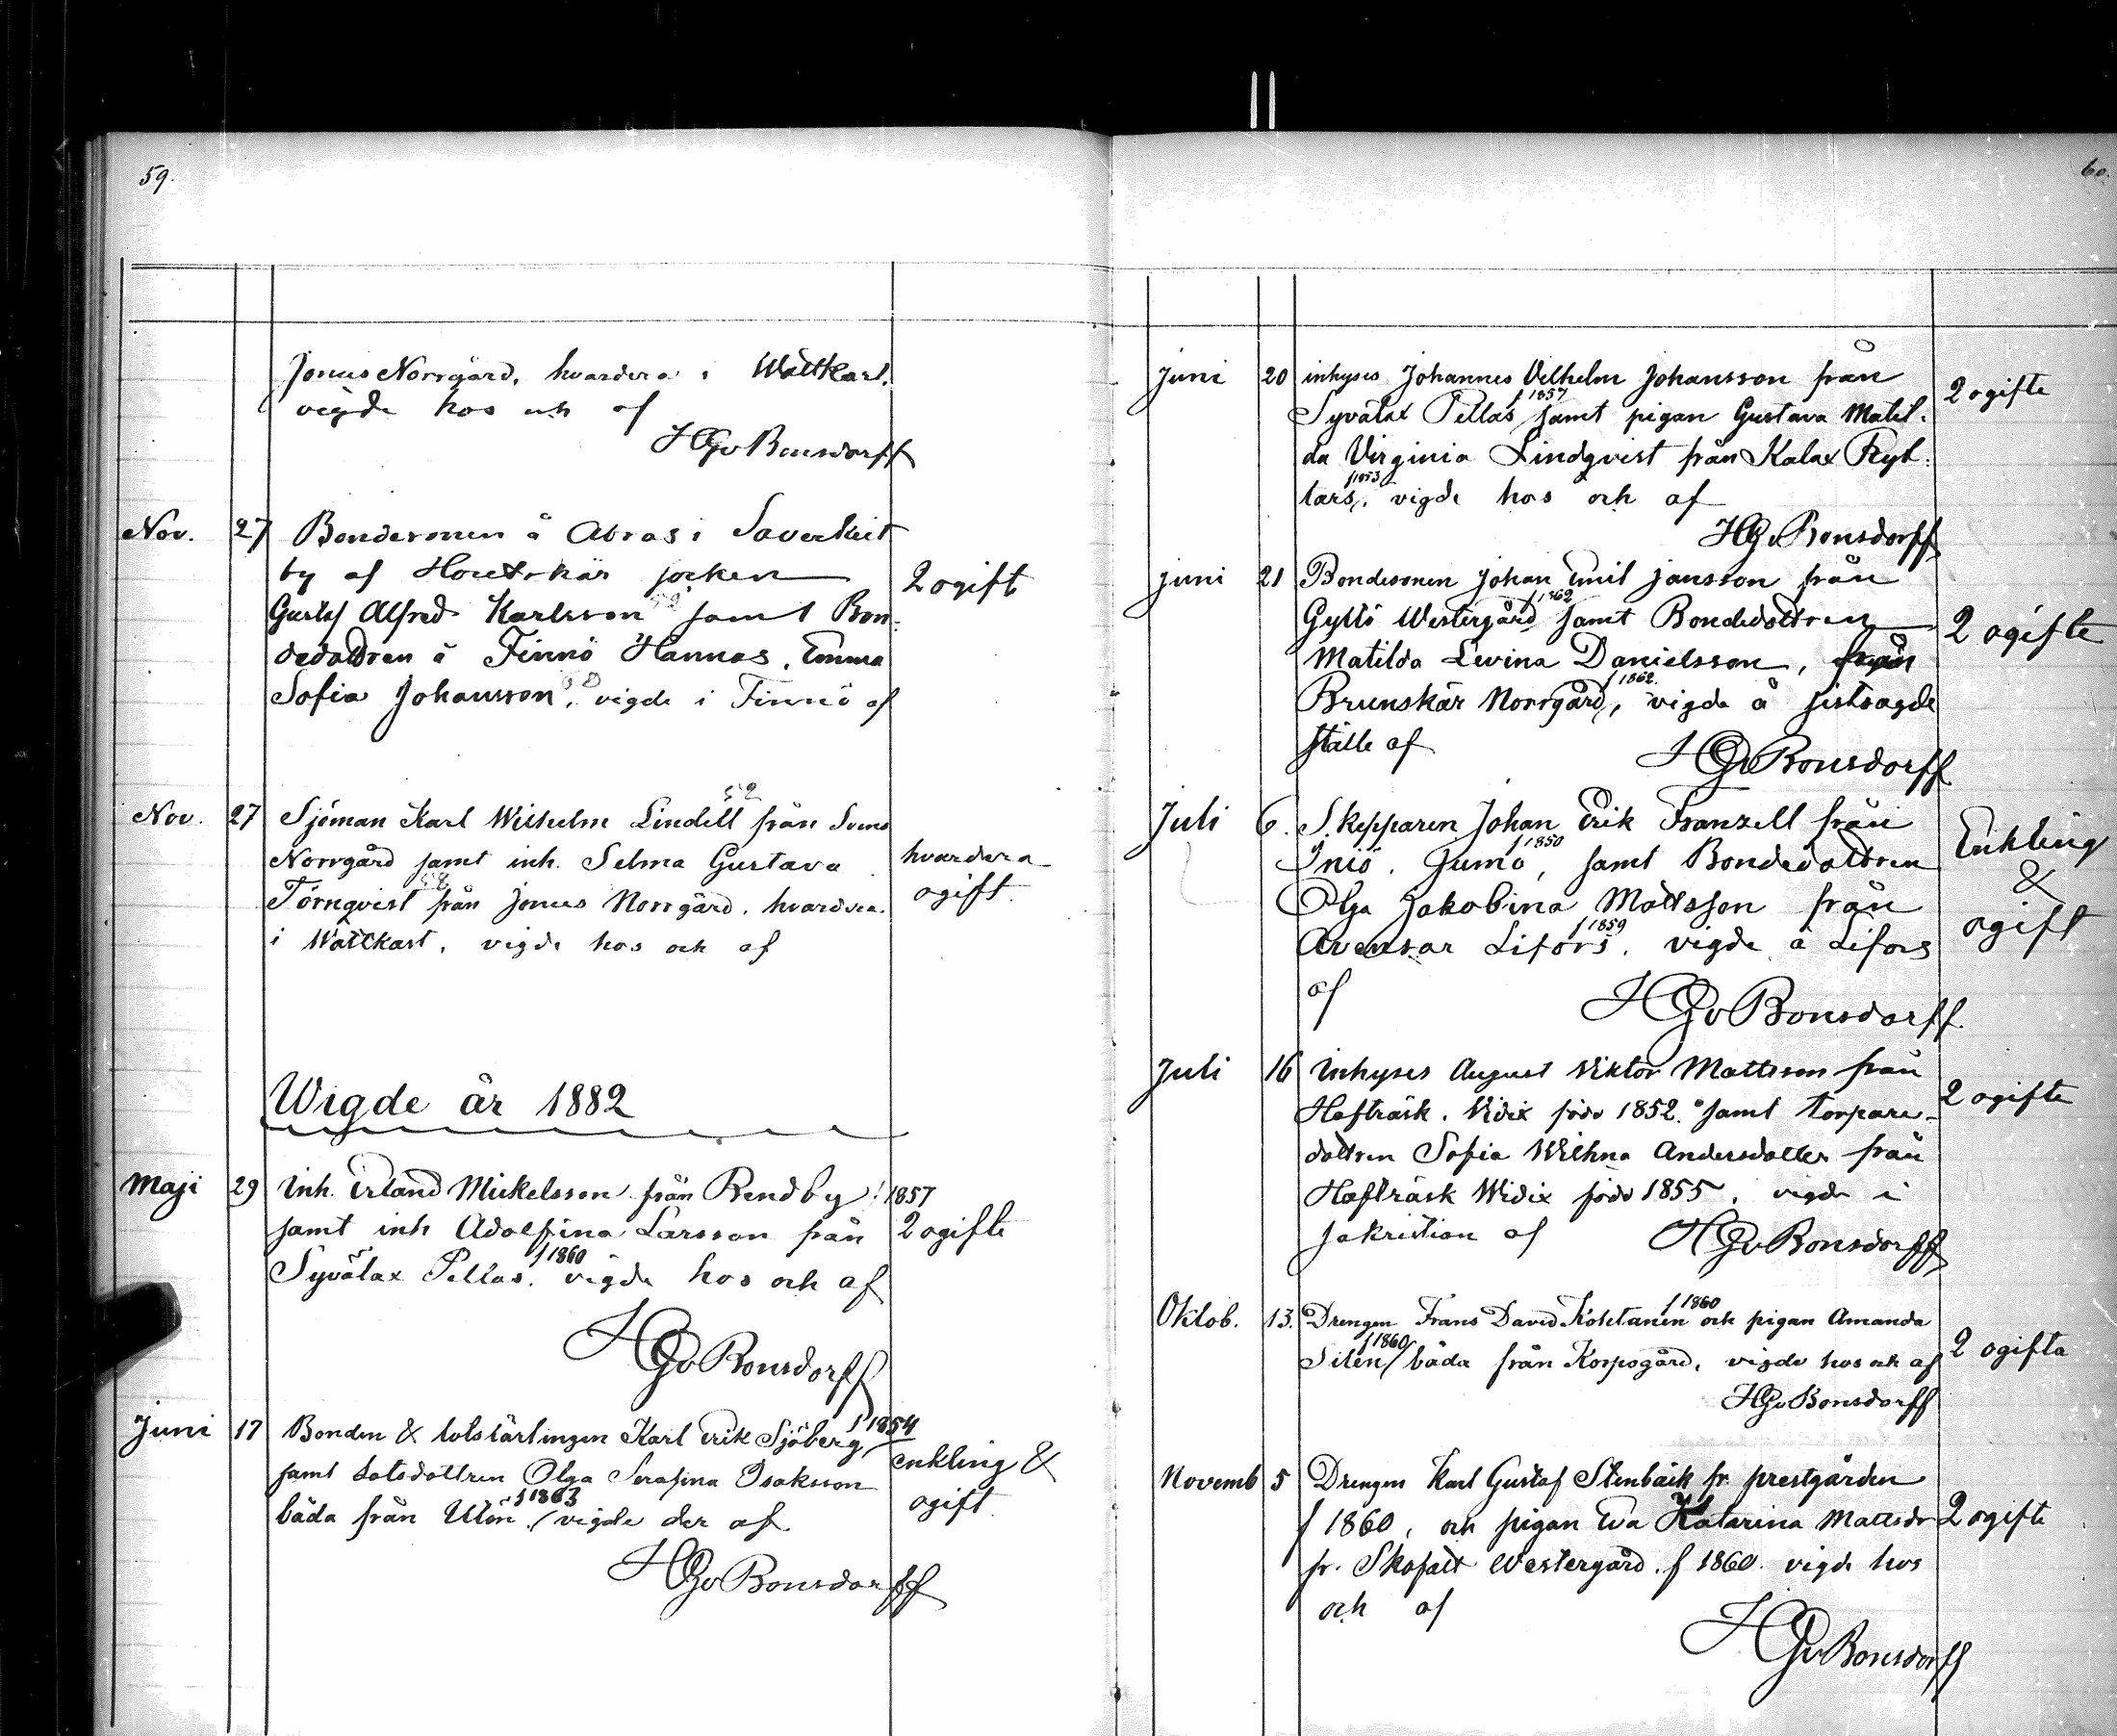 59.
Jonus Norrgård, hvardera i Wattkast.
vigde hos och af
HGvBonsdorff
Nov. 27 Bondesonen å Abras i Saverkeit
by af Houtskär socken
Gustaf Alfred Karlsson samt Bon-
dedottren å Finnö Hannas, Emma
Sofia Johansson, vigde i Finnö af
2 ogift
Nov. 27 Sjöman Karl Wilhelm Lindell 52 från
Norrgård samt inh. Selma Gustava
Törnqvist 58 från Jonus Norrgård. hvardera
i Wattkast, vigde hos och af
hvardera
ogift.
Wigde år 1882
Maji 29 Inh. Erland Mickelsson från Rendby f 1857
samt inh Adolfina Larsson från
Syvälax Pellas. f 1860 vigde hos och af
2 ogifte
HGvBonsdorff
Juni 17 Bonden & lotslärlingen Karl Erik Sjöberg f 1854
samt Lotsdottren Olga Serafina Isaksson
båda från Utön. f 1863 vigde der af.
enkling &
ogift.
HGvBonsdorff
60.
Juni 20 inhyses Johannes Vilhelm Johansson från
Syvälax Pellas f 1857 samt pigan Gustava Matil-
da Virginia Lindqvist från Kalax Ryt-
tars f 1853. vigde hos och af
2 ogifte
HGvBonsdorff
Juni 21 Bondesonen Johan Emil Jansson från
Gyltö Westergård f 1862 samt Bondedottren
Matilda Levina Danielsson, från
Brunskär Norrgård f 1862, vigde å sistsagde
ställe af
2 ogifte
HGvBonsdorff
Juli 6. Skepparen Johan Erik Franzell från
Iniö. Jumo f 1850, samt Bondedottren
Olga Jakobina Mattsson från
Avensar Lifors f 1859. vigde å Lifors
af
Enkling
&
ogift
HGvBonsdorff.
Juli 16 Inhyses August Viktor Mattsson från
Hafträsk. Widix född 1852. samt torpare-
dottren Sofia Wilhna Andersdotter från
Hafträsk Widix född 1855, vigde i
sakristian af
2 ogifte
HGvBonsdorff
Oktob. 13. Drengen Frans David f 1860 och pigan Amanda
Silén f 1860 båda från Korpogård, vigde hos och af
2 ogifta
HGvBonsdorff
Novemb 5 Drengen Karl Gustaf Stenbäck fr. prestgården
f 1860, och pigan Eva Katarina Mattsdr
fr. Skofält Westergård. f 1860. vigde hos
och af
2 ogifte
HGvBonsdorff